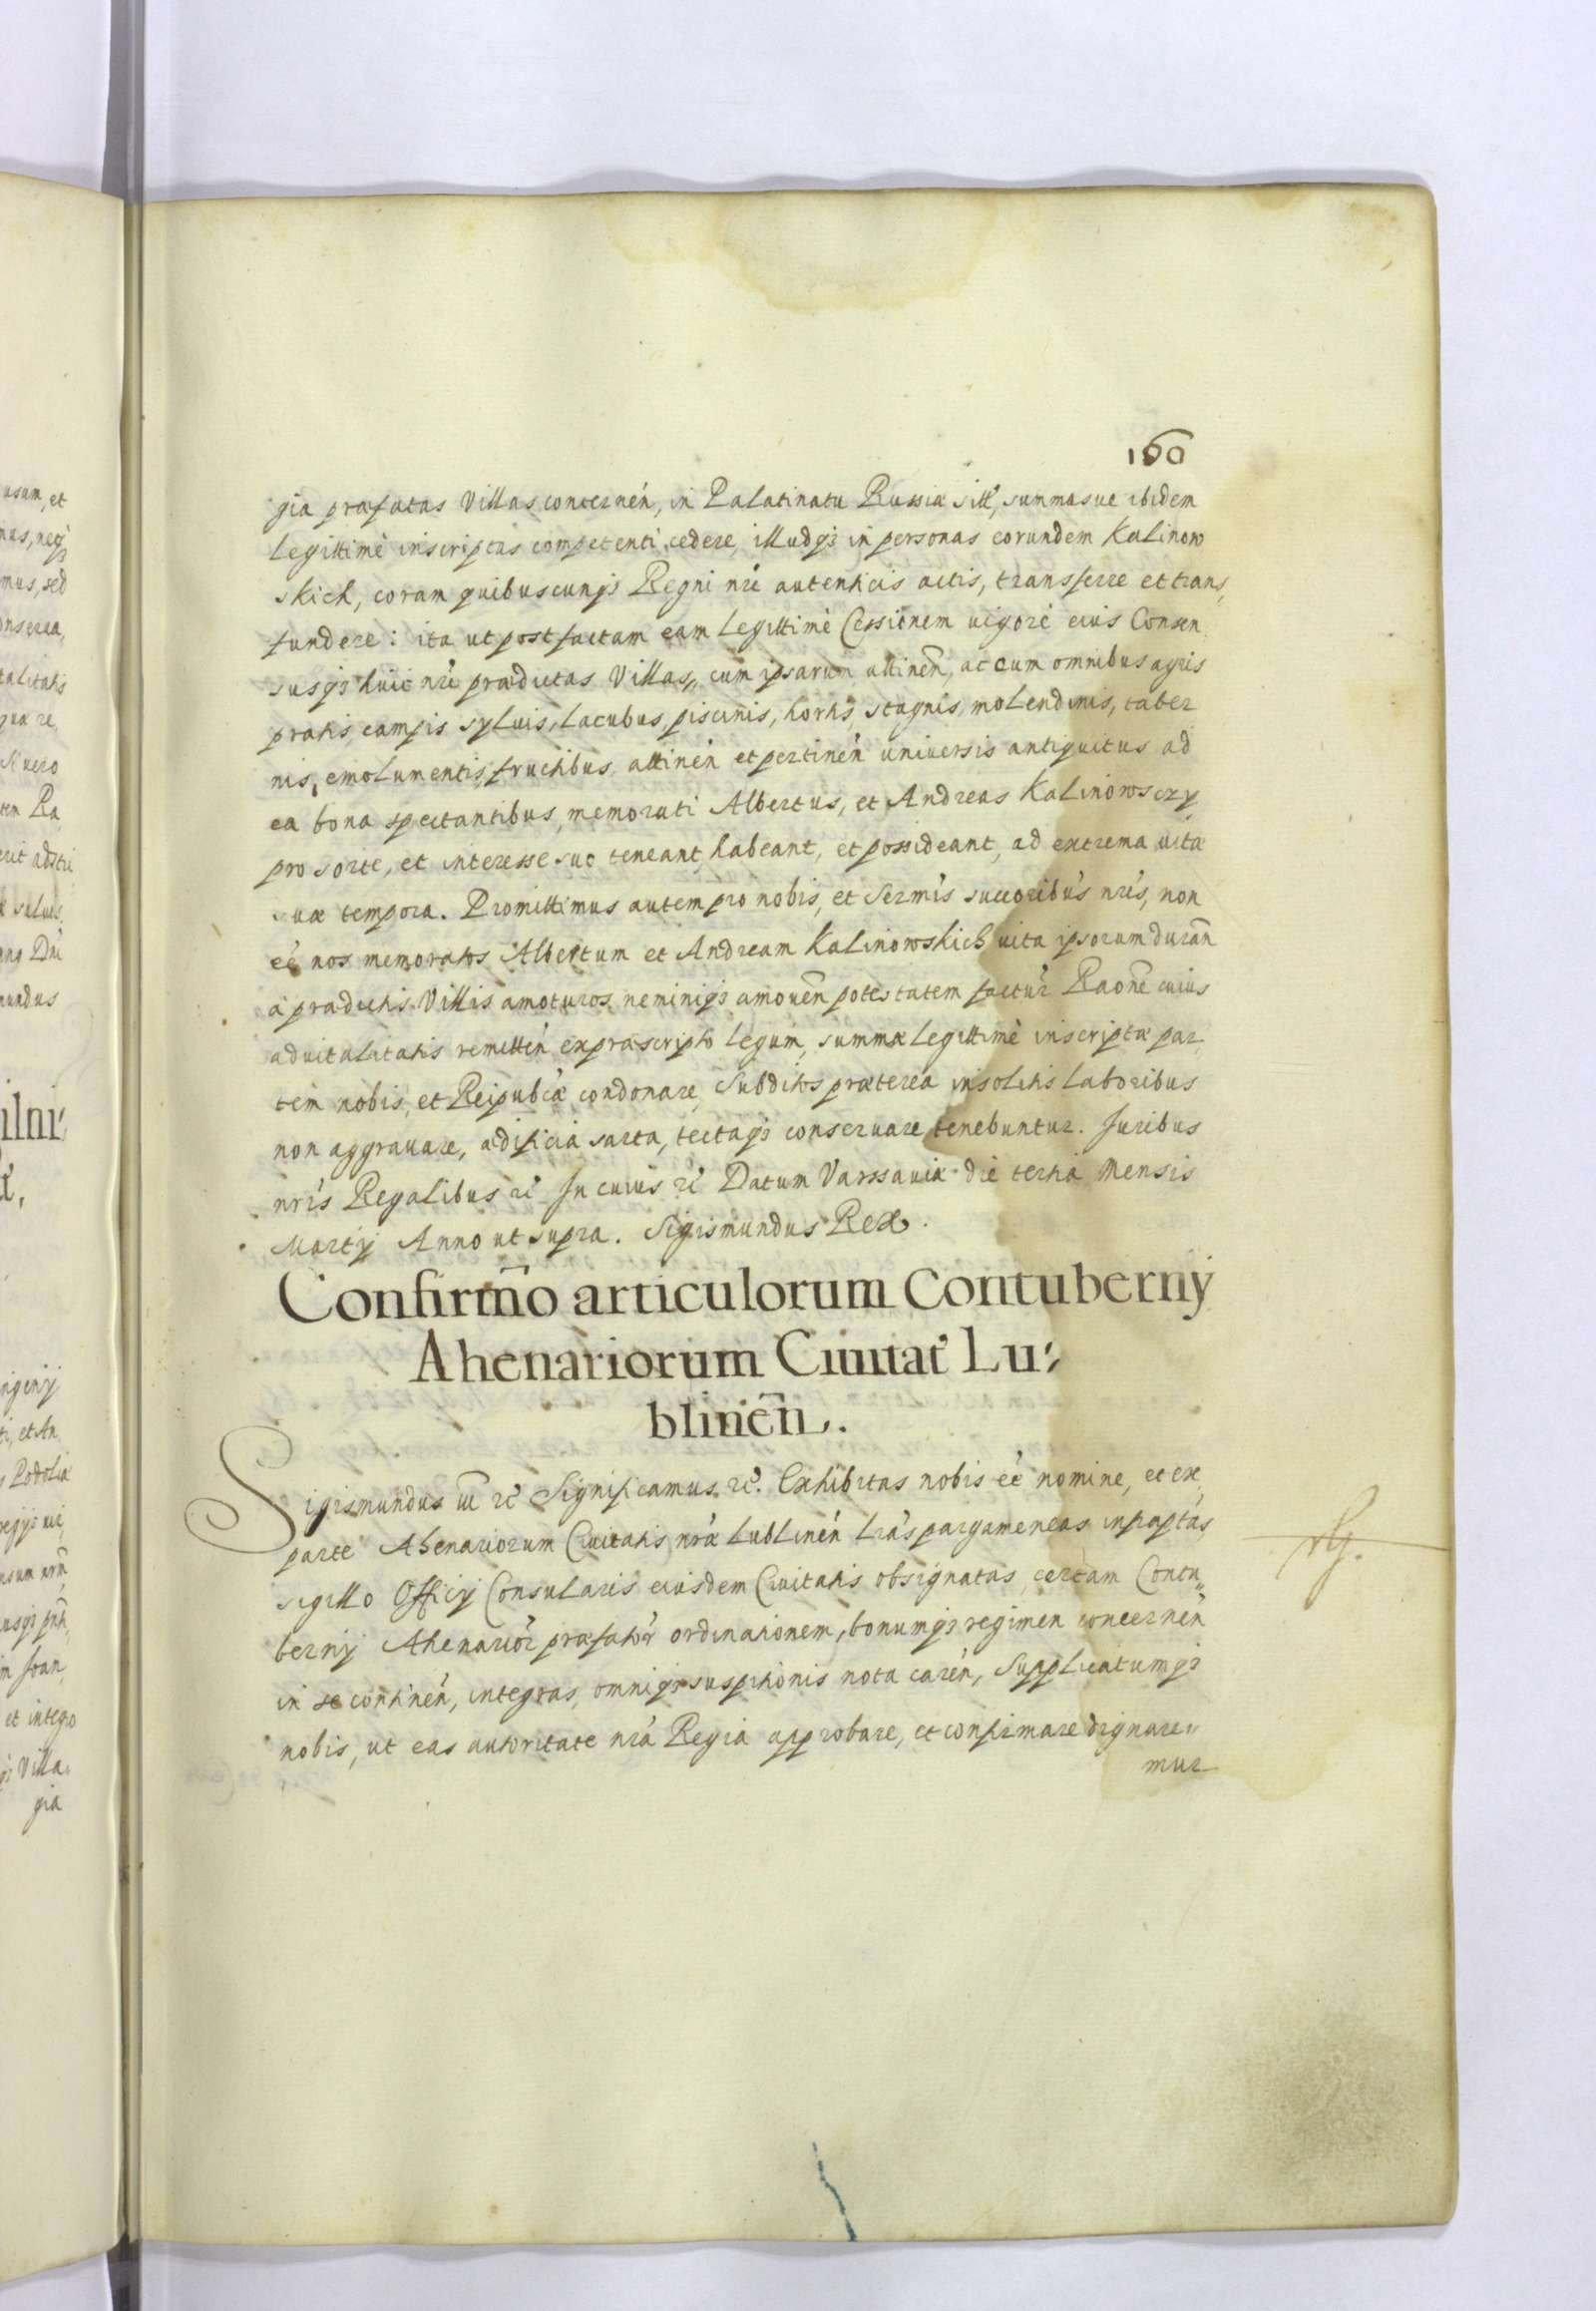 160
gia præfatas Villas concernén, in Palatinatu Russiæ sitt, summasue ibidem
legittimè inscriptas competenti cedere, illudqз in personas eorundem Kalinow
skich, coram quibuscunqз Regni nri autenticis actis, transferre et trans,
fundere: ita ut post factam eam legittimè Cessionem uigore eius Consen
susqз huic nri prædictas Villas, cum ipsarum attinen, ac cum omnibus agris
pratis, campis syluis, lacubus, piscinis, hortis, stagnis, molendinis, taber
nis, emolumentis, fructibus attinén et pertinén uniuersis antiquitus ad
ea bona spectantibus, memorati Albertus, et Andreas Kalinowsczy,
pro sorte, et interesse suo teneant, habeant, et possideant, ad extrema uitæ
suæ tempora. Promittimus autem pro nobis, et Sermis succoribus nris, non
eé nos memoratos Albertum et Andream Kalinowskich uita ipsorum durañ
à prædictis Villis amoturos, neminiqз amouen potestatem factur Raone cuius
aduitalitatis remittén ex præscripto legum, summæ legittimè inscriptæ par,
tem nobis, et Reipubcæ condonare, Subditos præterea insolitis laboribus
non aggrauare, ædificia sarta, tectaqз conseruare tenebuntur. Juribus
nris Regalibus ꝛc̃ In cuius ꝛc̃ Datum Varssauiæ die tertia Mensis
Martij Anno ut supra. Sigismundus Rex.
Confirmo articulorum Contubernij
Ahenariorum Ciuitat Lu:
blinen.
Sigismundus iii ꝛc̃ Significamus ꝛc̃. Exhibitas nobis eé nomine, et ex
parte Ahenariorum Ciuitatis nræ Lublinén lras pargameneas infraptas,
sigillo Officij Consularis eiusdem Ciuitatis obsignatas, certam Contu,,
bernij Ahenarior præfator ordinationem, bonumqз regimen concernen
in se continén, integras, omniqз suspitionis nota carén, Supplicatumqз
nobis, ut eas autoritate nra Regia approbare, et confirmare dignare,,
mur